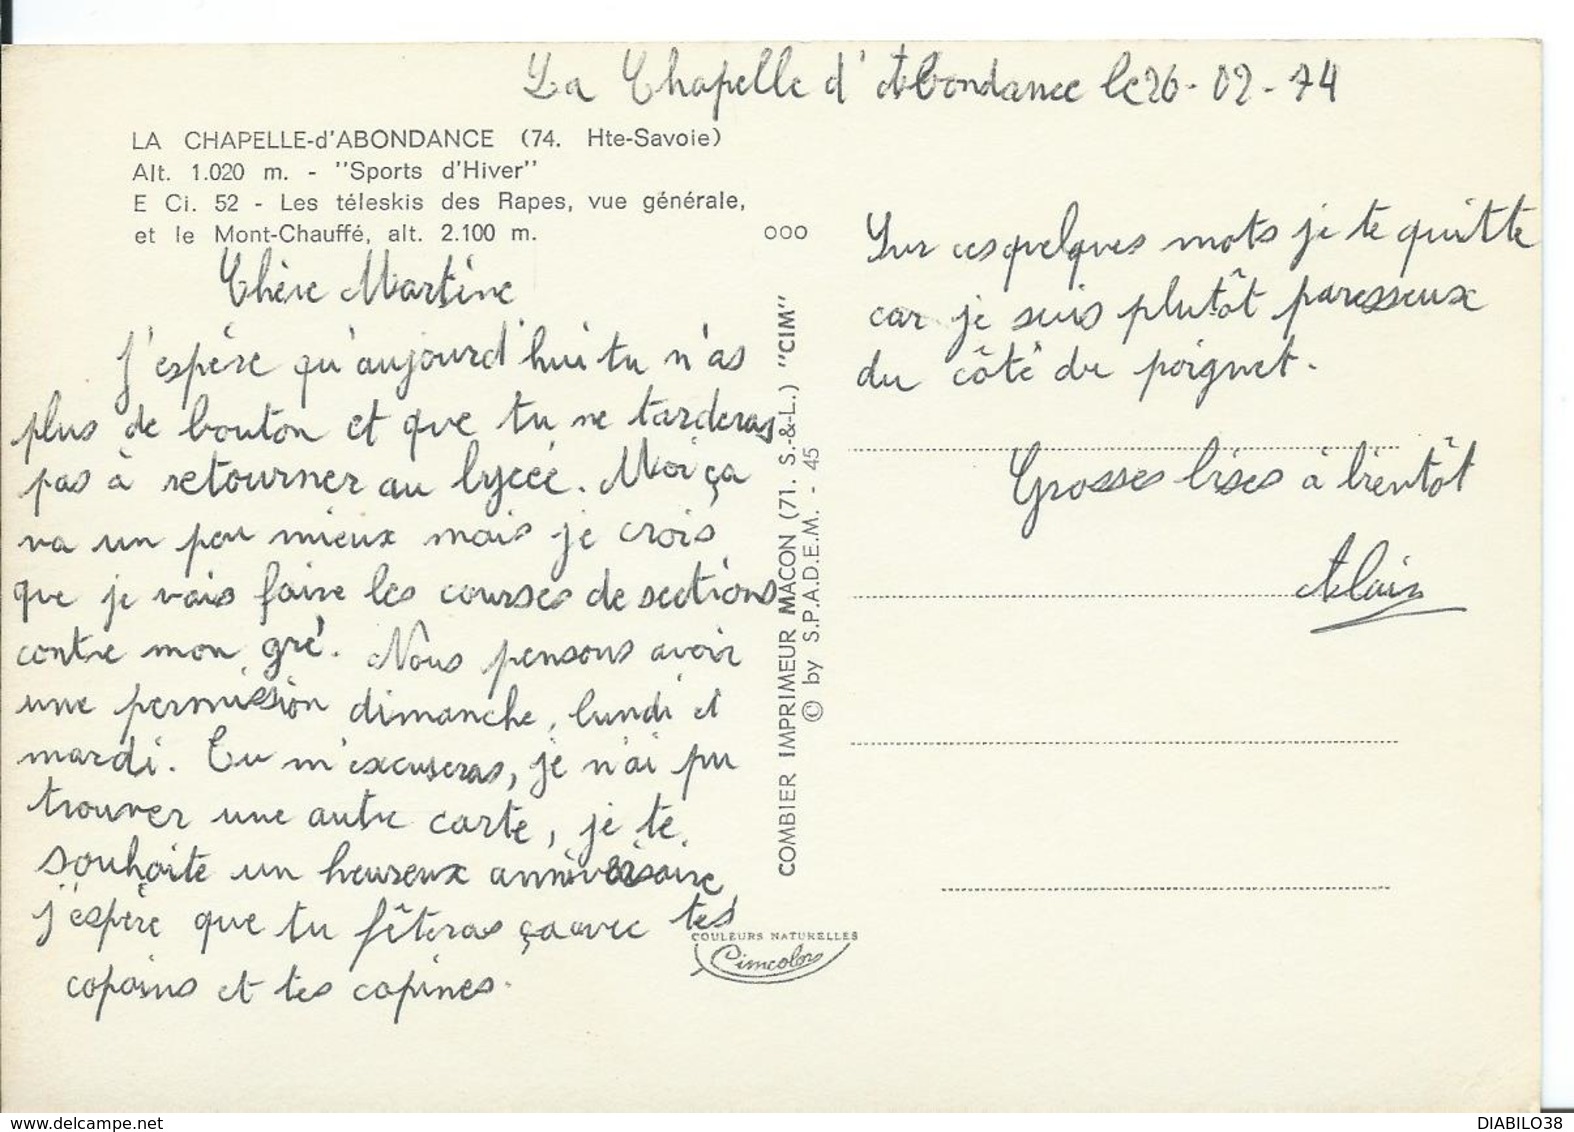 La Chapelle d'Abondance le 26-02-74
LA CHAPELLE-d'ABONDANCE (74. Hte-Savoie)
Alt. 1.020 m. - "Sports d'Hiver"
E Ci. 52 - Les téleskis des Rapes, vue générale,
et le Mont-Chauffé, alt. 2.100 m.
Chère Martine
J'espère qu'aujourd'hui tu n'as
plus de bouton et que tu ne tarderas
pas à retourner au lycée. Moi ça
va un peu mieux mais je crois
que je vais faire les courses de sections
contre mon gré. Nous pensons avoir
une permission dimanche, lundi et
mardi. Tu m'excuseras, je n'ai pu
trouver une autre carte, je te
souhaite un heureux anniversaire
j'espère que tu fêteras ça avec tes
copains et tes copines.
ooo
COMBIER IMPRIMEUR MACON (71. S.-&-L.) "CIM"
© by S.P.A.D.E.M. - 45
COULEURS NATURELLES
Cimcolor
Sur ces quelques mots je te quitte
car je suis plutôt paresseux
du côté du poignet.
Grosses bises à bientôt
Alain
DIABILO38